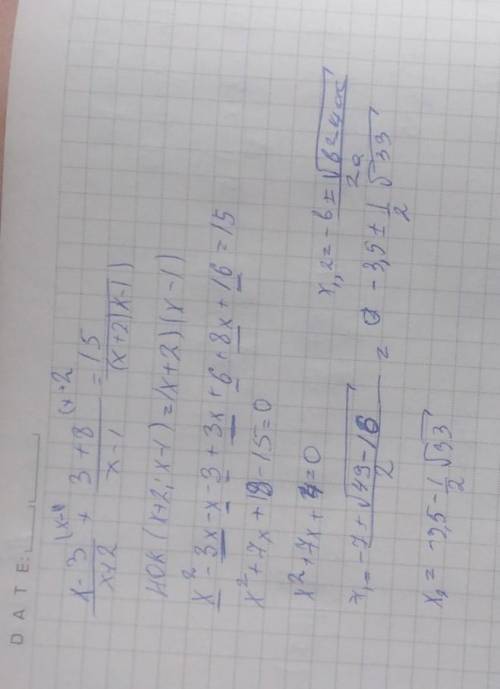 DATE:
x-3/x+2 (x-1 + 3+8/x-1 (x+2 = 15/(x+2)(x-1)
НОК (x+2; x-1) = (x+2)(x-1)
x² - 3x - x - 3 + 3x + 6 + 8x + 16 = 15
x² + 7x + 19 - 15 = 0
x² + 7x + 4 = 0
x₁,₂ = -b ± √b²-4ac / 2a
x₁ = -7 + √49-16 / 2 = -3,5 ± 1/2 √33
x₂ = -3,5 - 1/2 √33